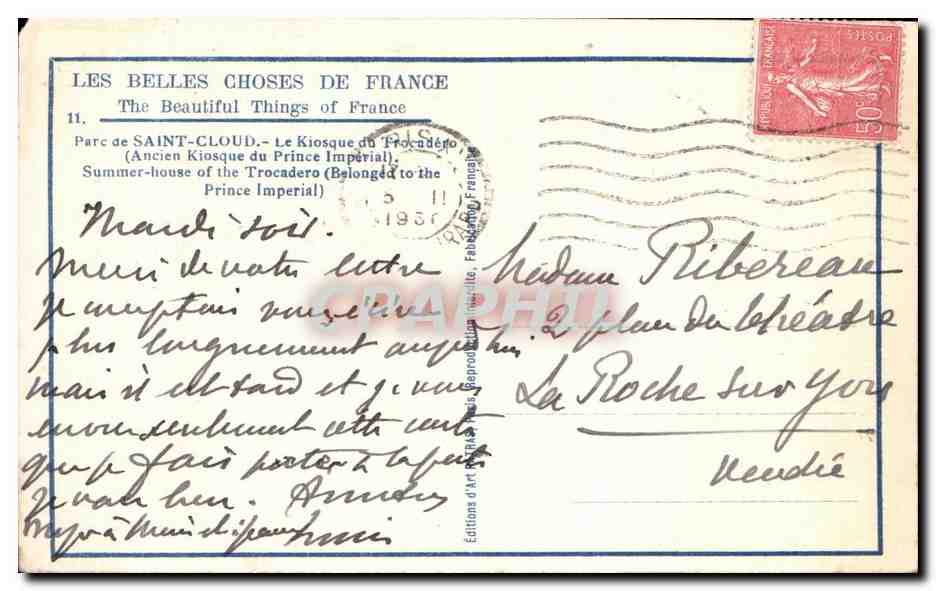 LES BELLES CHOSES DE FRANCE
The Beautiful Things of France
11.
Parc de SAINT-CLOUD.- Le Kiosque du Trocadéro
(Ancien Kiosque du Prince Impérial).
Summer-house of the Trocadero (Belonged to the
Prince Imperial)
Mardi soir.
Merci de votre lettre
je comptais vous écrire
plus longuement aujourd'hui
mais il est tard et je vous
envoie seulement cette carte
que je fais poster à la poste
je vais bien.
Editions d'Art Paris, Reproduction Interdite, Fabrication Française
REPUBLIQUE FRANÇAISE
POSTES
50c
PARIS
5 II
1930
Madame Ribereau
2 place du théâtre
La Roche sur Yon
Vendée
CPAPHIL